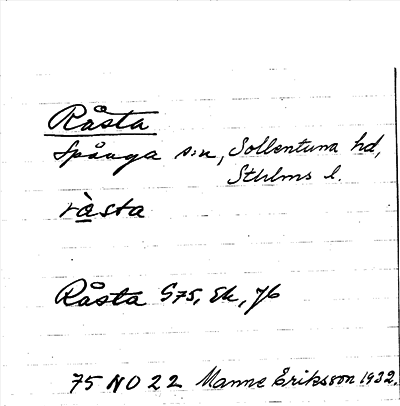 Råsta
Spånga s:n, Sollentuna hd,
Sthlms l.
ràsta
Råsta G75, Ek, Jb
75 NO 22 Manne Eriksson 1932.